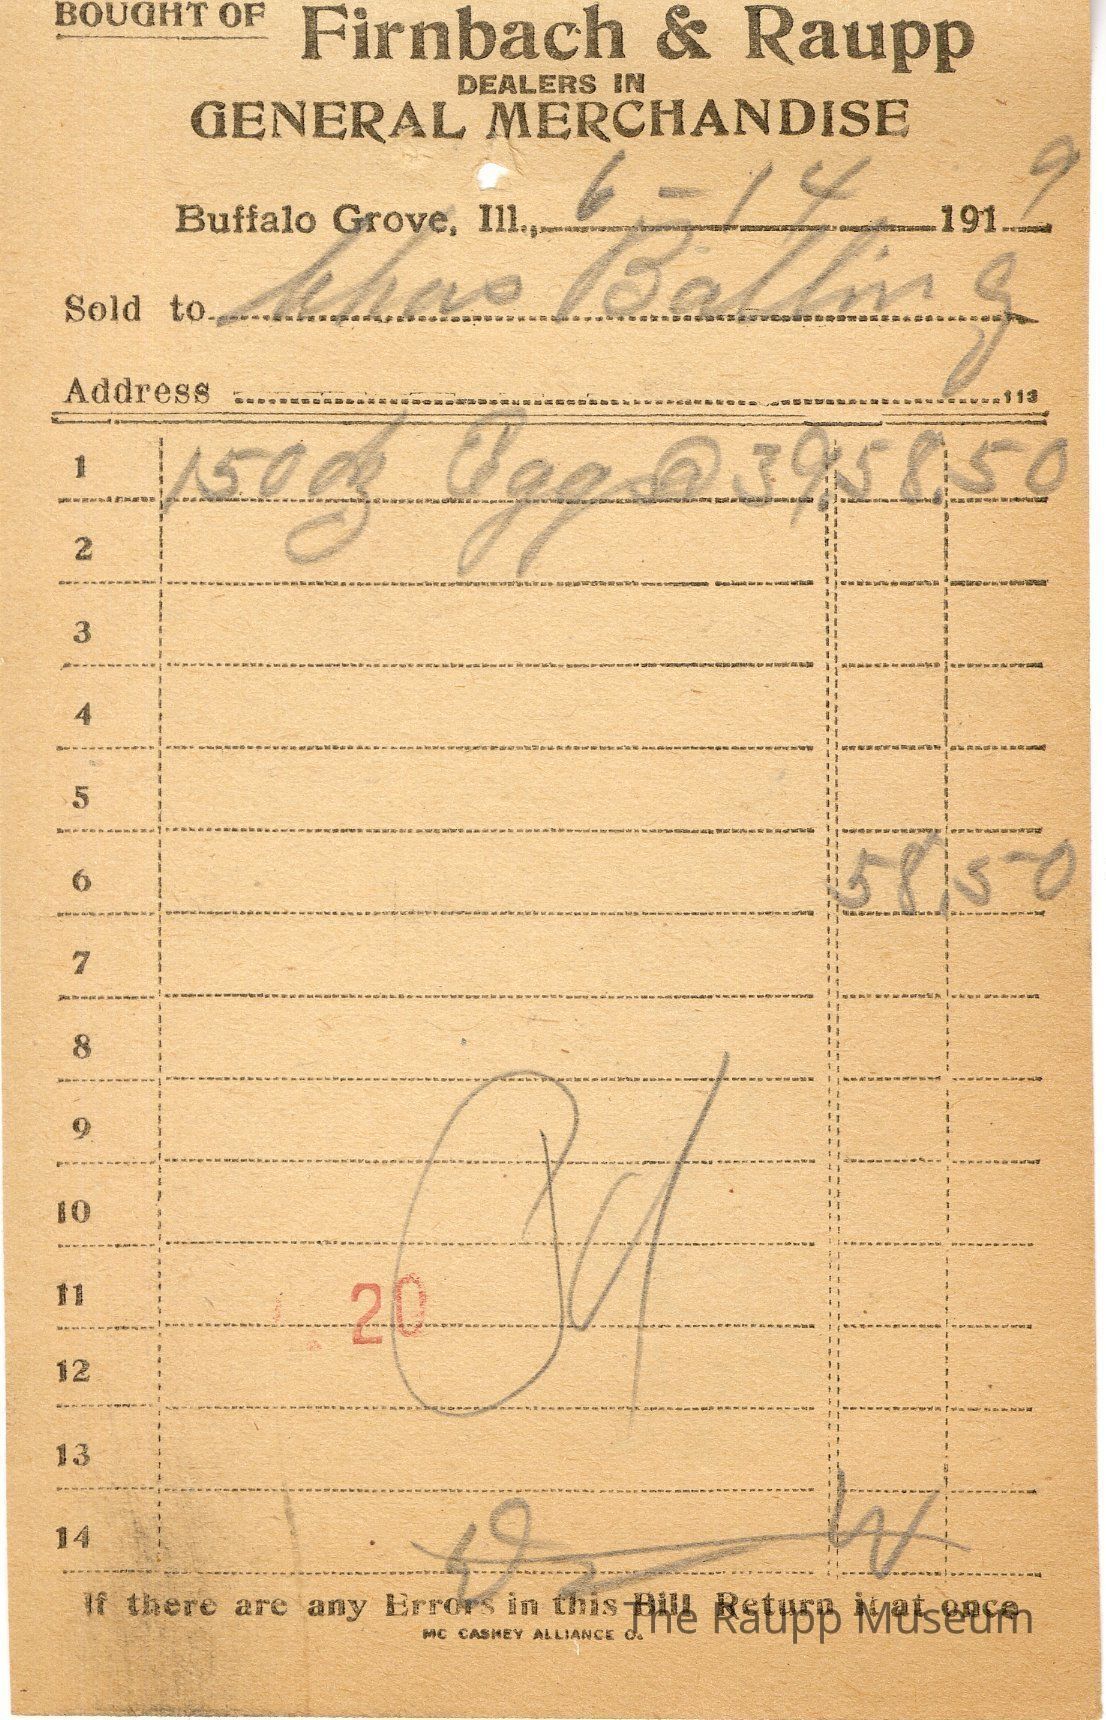 BOUGHT OF Firnbach & Raupp
DEALERS IN
GENERAL MERCHANDISE
Buffalo Grove, Ill., 6-14 1919
Sold to Chas Batling
Address 113
1 150 dz Eggs @ 39 58.50
2
3
4
5
6 58.50
7
8
9
10
11 20
12
13
14
Pd
If there are any Errors in this Bill Return it at once
MC CASKEY ALLIANCE O.
The Raupp Museum